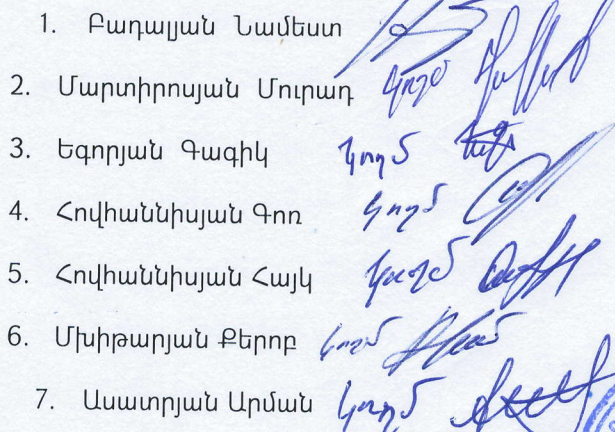 1. Բադալյան Նամեստ
2. Մարտիրոսյան Մուրադ կողմ
3. Եգորյան Գագիկ կողմ
4. Հովհաննիսյան Գոռ կողմ
5. Հովհաննիսյան Հայկ կողմ
6. Մխիթարյան Քերոբ կողմ
7. Ասատրյան Արման կողմ